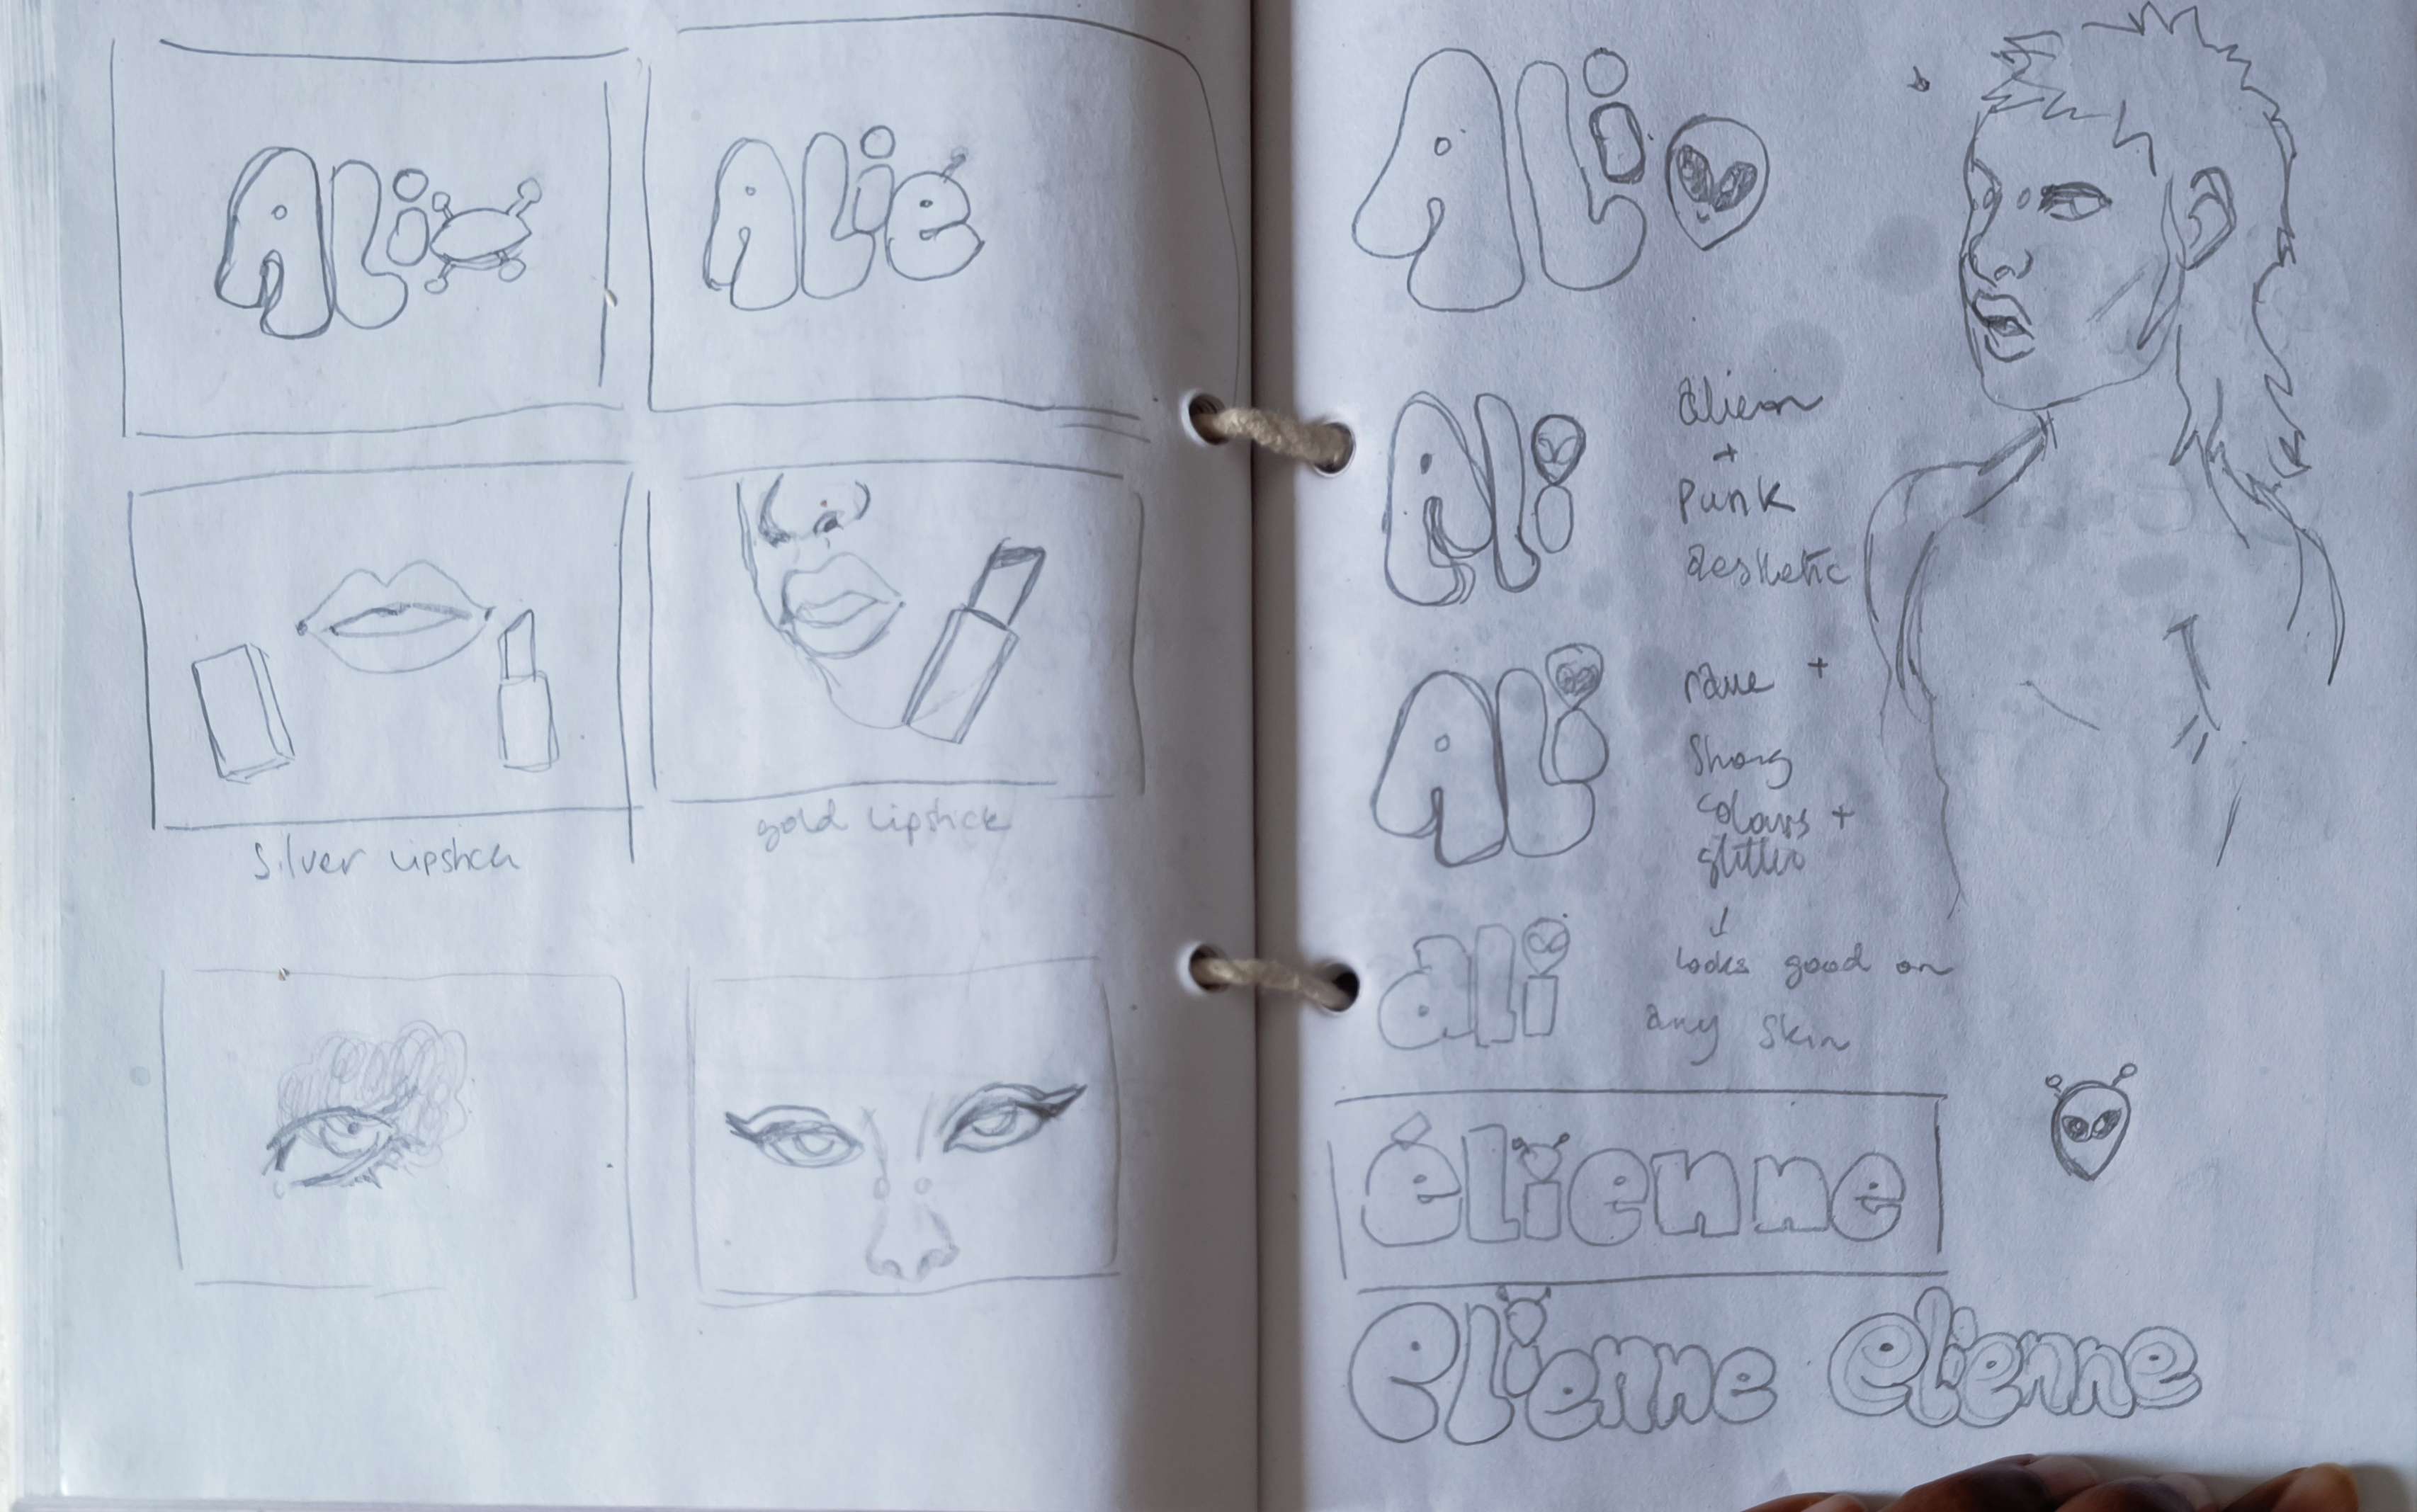 ALi
ALie
silver lipstick
gold lipstick
ALi
ALi
ALi
ali
alien
+
punk
aesthetic
rave +
strong
colours +
glitter
↓
looks good on
any skin
élienne
elienne elienne